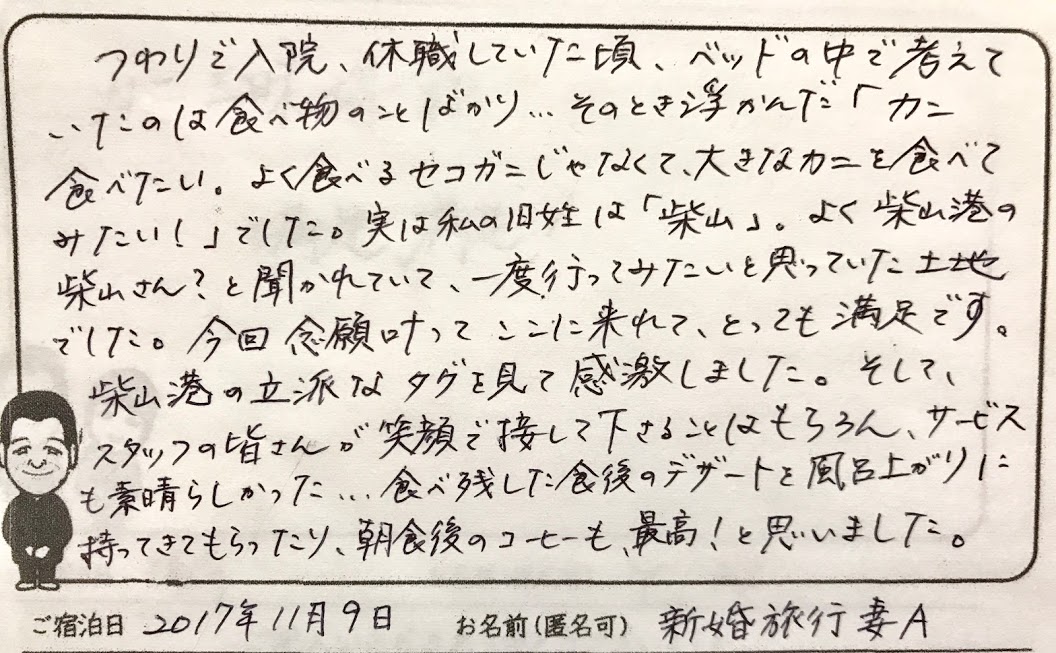 つわりで入院、休職していた頃、ベッドの中で考えて
いたのは食べ物のことばかり…そのとき浮かんだ「カニ
食べたい。よく食べるセコガニじゃなくて、大きなカニを食べて
みたい！」でした。実は私の旧姓は「柴山」。よく柴山港の
柴山さん？と聞かれていて、一度行ってみたいと思っていた土地
でした。今回念願叶ってここに来れて、とっても満足です。
柴山港の立派なタグを見て感激しました。そして、
スタッフの皆さんが笑顔で接して下さることはもちろん、サービス
も素晴らしかった…食べ残した食後のデザートを風呂上がりに
持ってきてもらったり、朝食後のコーヒーも、最高！と思いました。
ご宿泊日 2017年11月9日 お名前(匿名可) 新婚旅行妻A